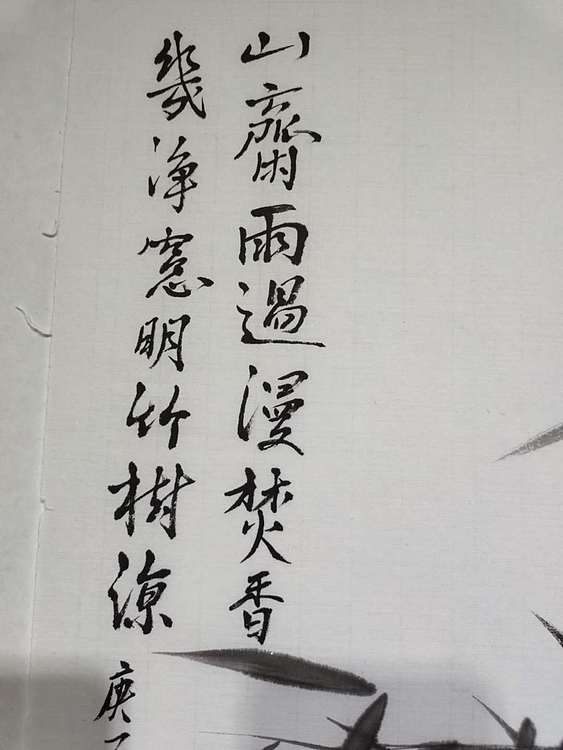 山齋雨過漫焚香
幾淨窓明竹樹涼
庚